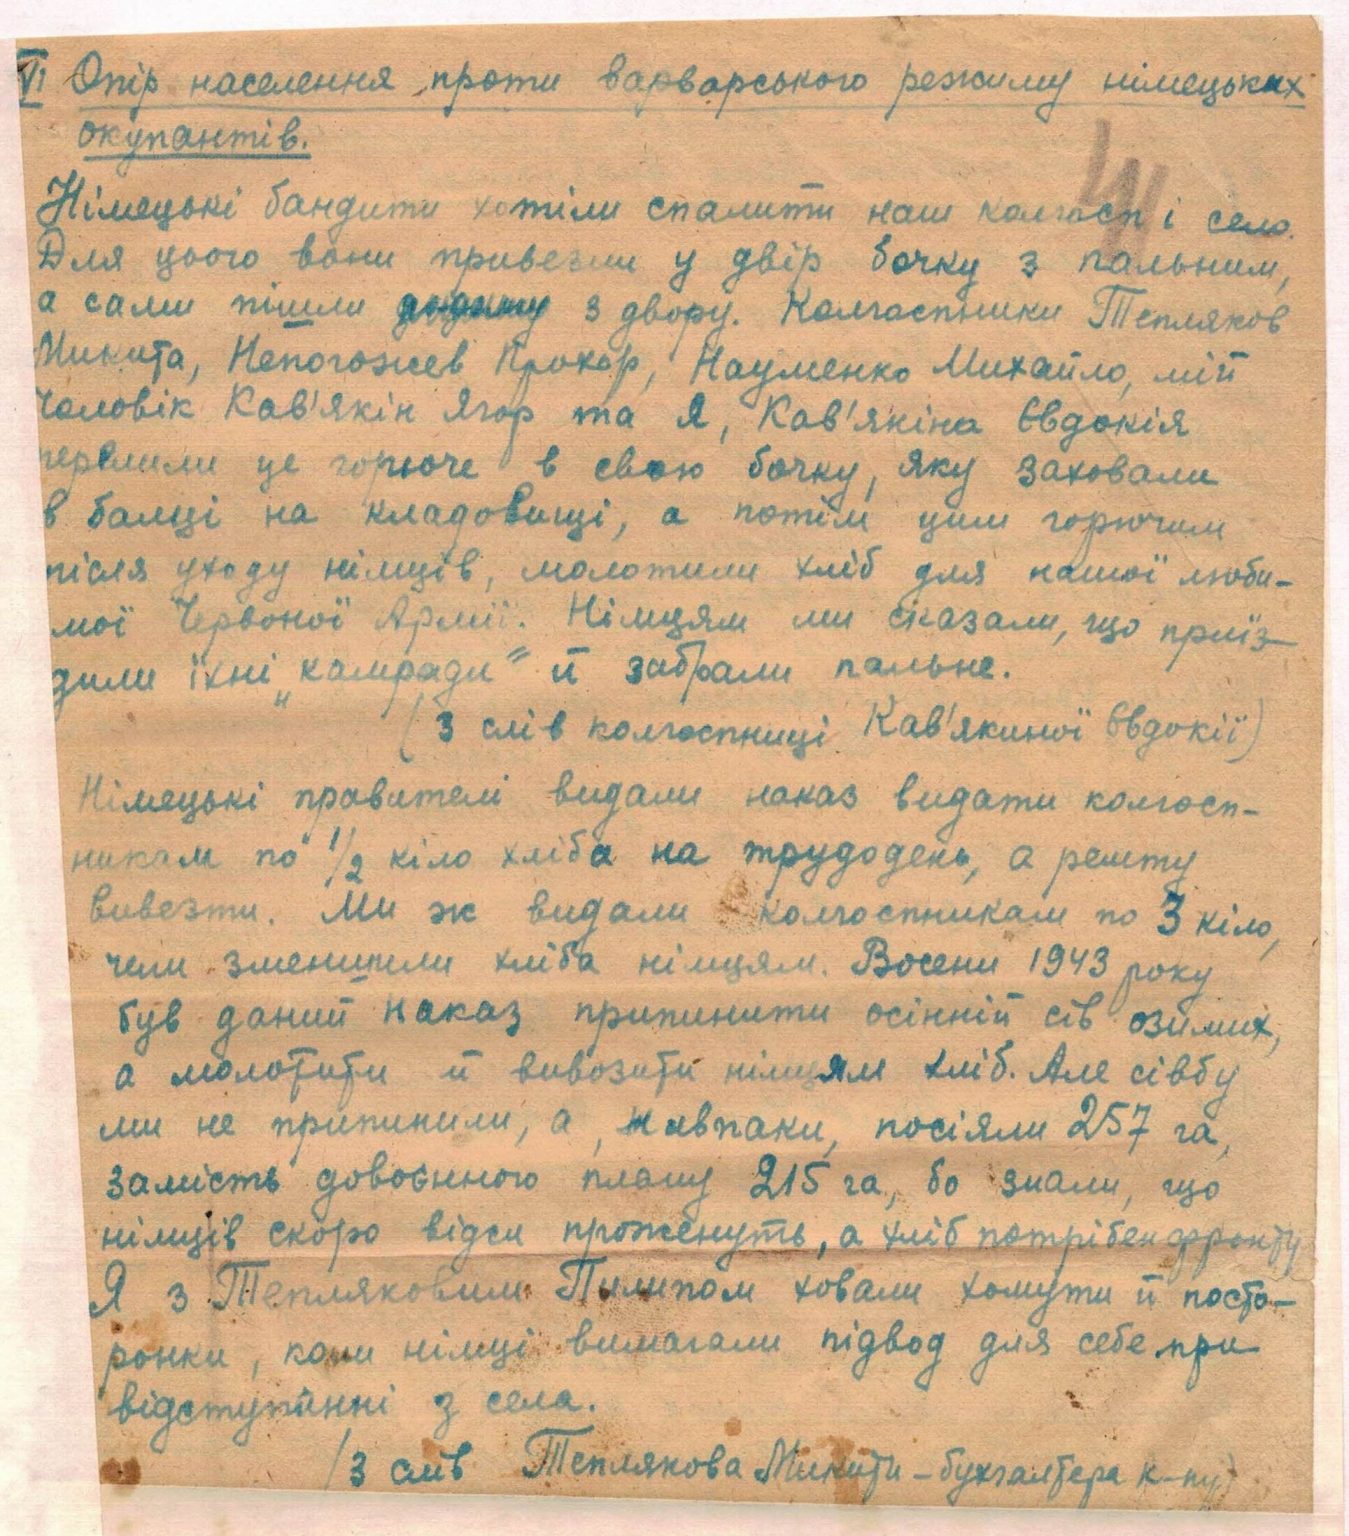 VI Опір населення проти варварського режиму німецьких
окупантів.
Німецькі бандити хотіли спалити наш колгосп і село.
Для цього вони привезли у двір бочку з пальним,
а сами пішли з двору. Колгоспники Тепляков
Микита, Непогожев Прохор, Науменко Михайло, мій
чоловік Кав'якін Ягор та я, Кав'якіна Євдокія
перелили це горюче в свою бочку, яку заховали
в балці на кладовищі, а потім цим горючим
після уходу німців, молотили хліб для нашої люби-
мої Червоної Армії. Німцям ми сказали, що приїз-
дили їхні „камради" й забрали пальне.
(З слів колгоспниці Кав'якиної Євдокії)
Німецькі правителі видали наказ видати колгосп-
никам по 1/2 кіло хліба на трудодень, а решту
вивезти. Ми ж видали колгоспникам по 3 кіло,
чем зменшили хліба німцям. Восени 1943 року
був даний наказ припинити осінній сів озимих,
а молотити й вивозити німцям хліб. Але сівбу
ми не припинили, а, навпаки, посіяли 257 га,
замість довоєнного плану 215 га, бо знали, що
німців скоро відси проженуть, а хліб потрібен фронту
Я з Тепляковим Пилипом ховали хомути й посто-
ронки, коли німці вимагали підвод для себе при
відступанні з села.
/З слів Теплякова Микити - бухгалтера к-пу)